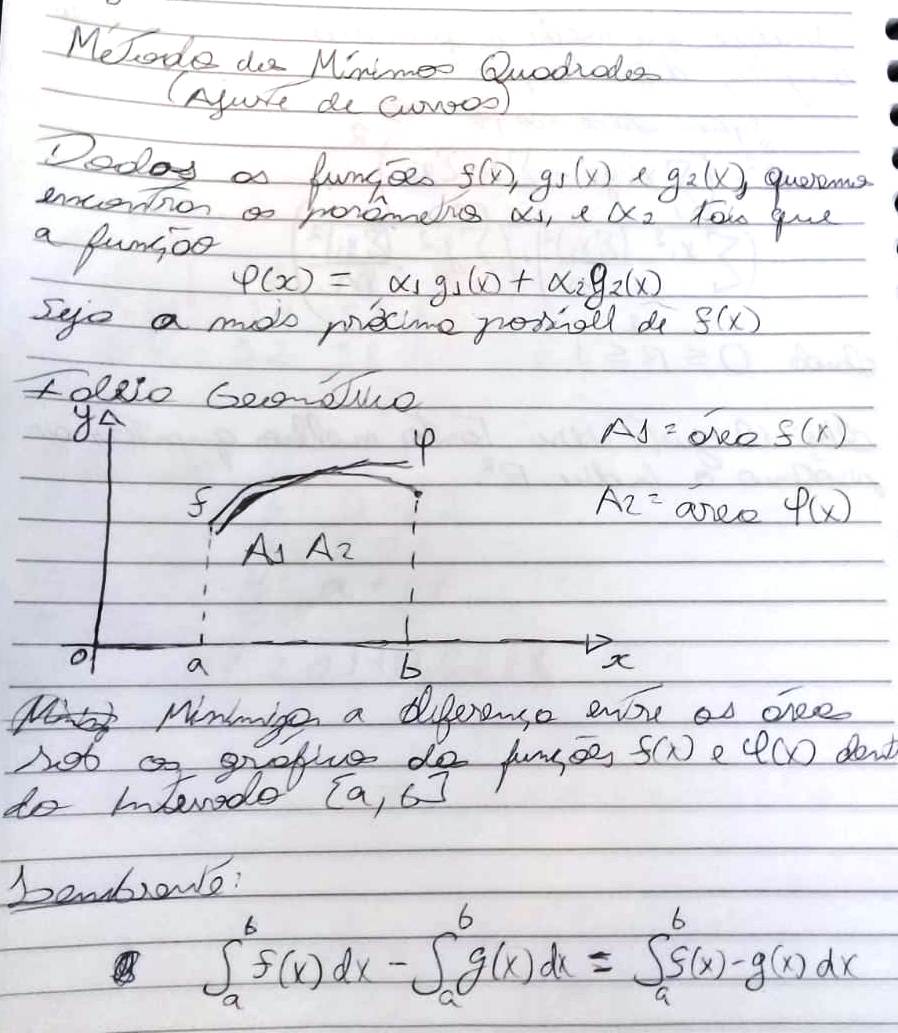 Método dos Mínimos Quadrados
(Ajuste de Curvas)
Dados as funções f(x), g1(x) e g2(x), queremos
encontrar os parâmetros α1, e α2 tais que
a função
φ(x) = α1 g1(x) + α2 g2(x)
Seja a mais próximo possível de f(x)
Geométrico
y
φ
A1 = área f(x)
f
A2 = área φ(x)
A1 A2
0 a b x
Minimizar a diferença entre as áreas
sob os gráficos das funções f(x) e φ(x) dent
do Intervalo [a, b]
Lembrente:
∫ₐᵇ f(x) dx - ∫ₐᵇ g(x) dx = ∫ₐᵇ f(x) - g(x) dx